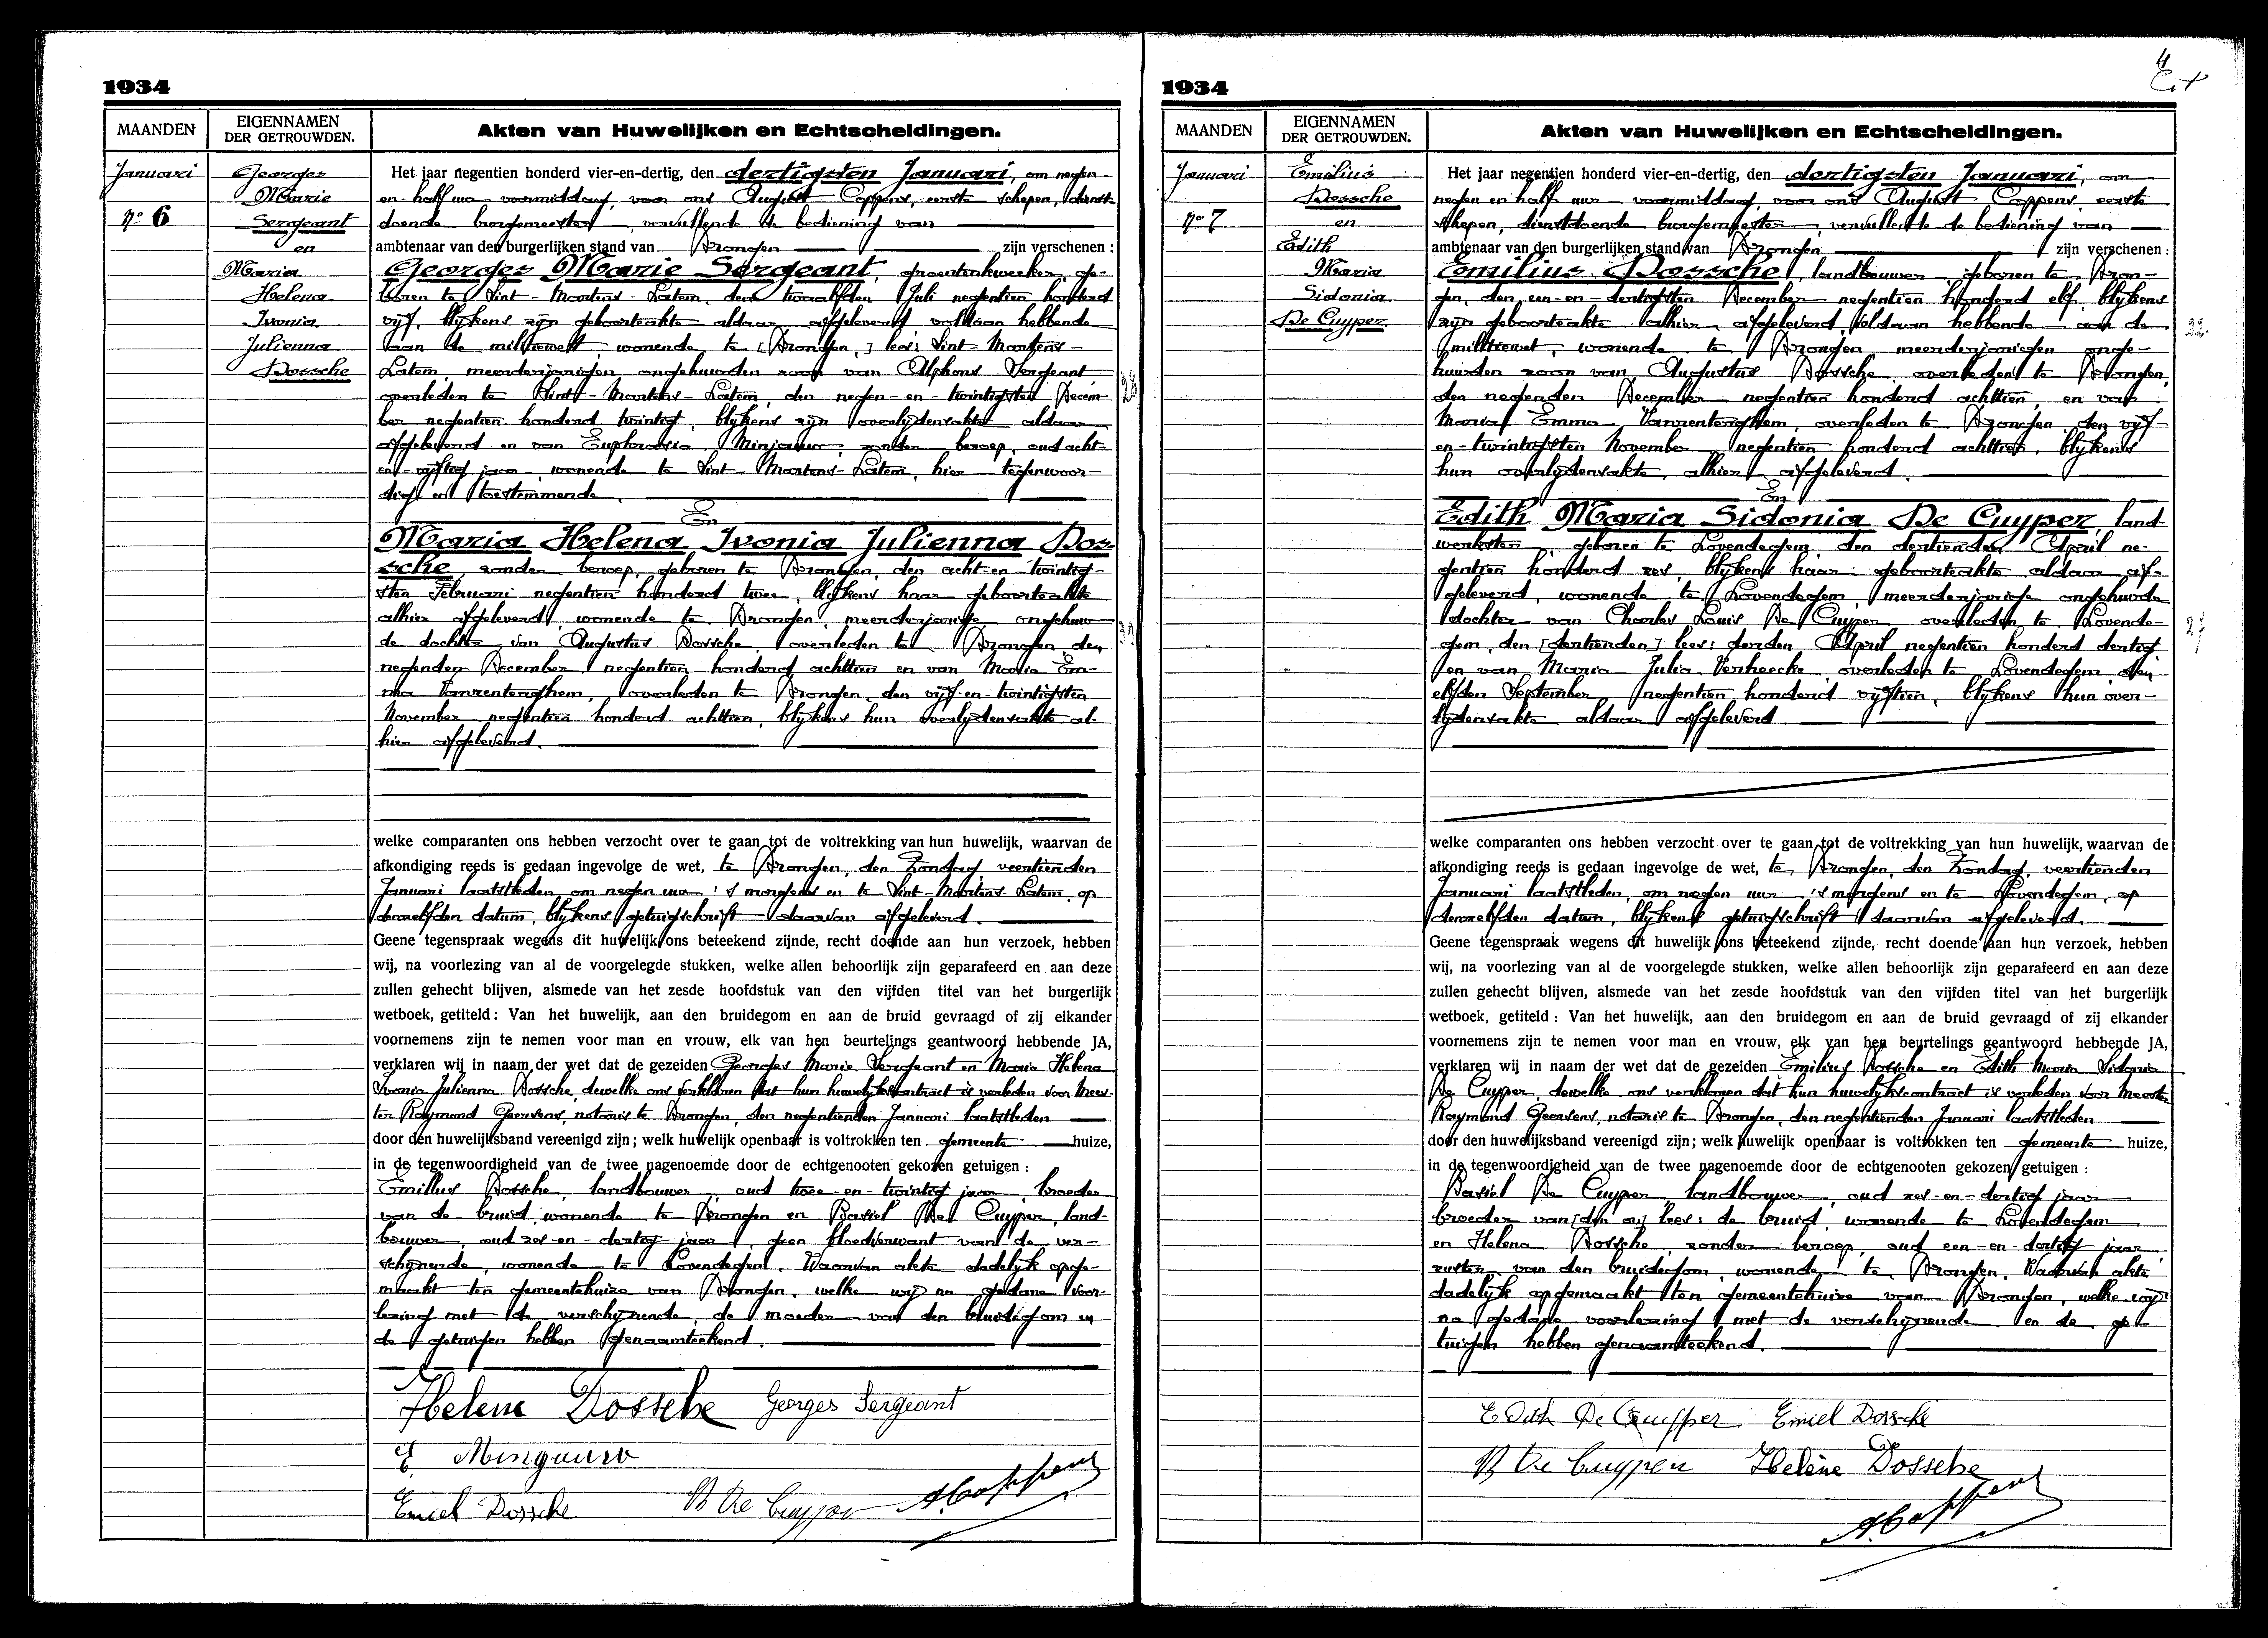 1934
MAANDEN
EIGENNAMEN
DER GETROUWDEN.
Akten van Huwelijken en Echtscheidingen.
Januari
no 6
Georges
Marie
Sergeant
en
Maria
Helena
Ivonia
Julienna
Dossche
Het jaar negentien honderd vier-en-dertig, den dertigsten Januari, om negen-
en-half uur voormiddag, voor ons August Coppens, eerste schepen, dienst-
doende burgemeester, vervullende de bediening van
ambtenaar van den burgerlijken stand van Drongen zijn verschenen :
Georges Marie Sergeant, groentenkweeker, ge-
boren te Sint-Martens-Latem, den twaalfden Juli negentien honderd
vijf, blijkens zijn geboorteakte aldaar afgeleverd, voldaan hebbende
aan de militiewet, wonende te [Drongen,] lees: Sint-Martens-
Latem, meerderjarigen ongehuwden zoon van Alphons Sergeant,
overleden te Sint-Martens-Latem, den negen-en-twintigsten Decem-
ber negentien honderd twintig, blijkens zijn overlijdensakte aldaar
afgeleverd en van Euphrasia Minjauw, zonder beroep, oud acht-
en-vijftig jaar, wonende te Sint-Martens-Latem, hier tegenwoor-
dig en toestemmende.
En
Maria Helena Ivonia Julienna Dos-
sche, zonder beroep, geboren te Drongen, den acht-en-twintig-
sten Februari negentien honderd twee, blijkens haar geboorteakte
alhier afgeleverd, wonende te Drongen, meerderjarige ongehuw-
de dochter van Augustus Dossche, overleden te Drongen, den
negenden December negentien honderd achttien en van Maria Em-
ma Vanrenterghem, overleden te Drongen, den vijf-en-twintigsten
November negentien honderd achttien, blijkens hun overlijdensakte al-
hier afgeleverd.
welke comparanten ons hebben verzocht over te gaan tot de voltrekking van hun huwelijk, waarvan de
afkondiging reeds is gedaan ingevolge de wet, te Drongen, den Zondag, veertienden
Januari laatstleden, om negen uur 's morgens en te Sint-Martens-Latem, op
denzelfden datum, blijkens getuigschrift daarvan afgeleverd.
Geene tegenspraak wegens dit huwelijk ons beteekend zijnde, recht doende aan hun verzoek, hebben
wij, na voorlezing van al de voorgelegde stukken, welke allen behoorlijk zijn geparafeerd en aan deze
zullen gehecht blijven, alsmede van het zesde hoofdstuk van den vijfden titel van het burgerlijk
wetboek, getiteld : Van het huwelijk, aan den bruidegom en aan de bruid gevraagd of zij elkander
voornemens zijn te nemen voor man en vrouw, elk van hen beurtelings geantwoord hebbende JA,
verklaren wij in naam der wet dat de gezeiden Georges Marie Sergeant en Maria Helena
Ivonia Julienna Dossche, dewelke ons verklaren dat hun huwelijkscontract is verleden voor Mees-
ter Raymond Goersens, notaris te Drongen, den negentienden Januari laatstleden
door den huwelijksband vereenigd zijn ; welk huwelijk openbaar is voltrokken ten gemeente huize,
in de tegenwoordigheid van de twee nagenoemde door de echtgenooten gekozen getuigen :
Emilius Dossche, landbouwer, oud twee-en-twintig jaar, broeder
van de bruid, wonende te Drongen en Basiel De Cuyper, land-
bouwer, oud zes-en-dertig jaar, geen bloedverwant van de ver-
schijnende, wonende te Lovendegem. Waarvan akte dadelijk opge-
maakt ten gemeentehuize van Drongen, welke wij na gedane voor-
lezing met de verschijnende, de moeder van den bruidegom en
de getuigen hebben genaamteekend.
Helene Dossche Georges Sergeant
E. Minjauw
Emiel Dossche B De Cuyper A. Coppens
1934
MAANDEN
EIGENNAMEN
DER GETROUWDEN.
Akten van Huwelijken en Echtscheidingen.
Januari
no 7
Emilius
Dossche
en
Edith
Maria
Sidonia
De Cuyper
Het jaar negentien honderd vier-en-dertig, den dertigsten Januari, om
negen en half uur voormiddag, voor ons August Coppens, eerste
schepen, dienstdoende burgemeester, vervullende de bediening van
ambtenaar van den burgerlijken stand van Drongen zijn verschenen :
Emilius Dossche, landbouwer, geboren te Dron-
gen, den een-en-dertigsten December negentien honderd elf, blijkens
zijn geboorteakte alhier afgeleverd, voldaan hebbende aan de
militiewet, wonende te Drongen, meerderjarigen onge-
huwden zoon van Augustus Dossche, overleden te Drongen,
den negenden December negentien honderd achttien, en van
Maria Emma Vanrenterghem, overleden te Drongen, den vijf-
en-twintigsten November negentien honderd achttien, blijkens
hun overlijdensakte, alhier afgeleverd.
En
Edith Maria Sidonia De Cuyper, land-
werkster, geboren te Lovendegem, den dertienden April ne-
gentien honderd zes, blijkens haar geboorteakte aldaar af-
geleverd, wonende te Lovendegem, meerderjarige ongehuwde
dochter van Charles Louis De Cuyper, overleden te Lovende-
gem, den [dertienden] lees: derden April negentien honderd dertig
en van Maria Julia Verheecke, overleden te Lovendegem, den
elfden September negentien honderd vijftien, blijkens hun over-
lijdensakte aldaar afgeleverd.
22.
27
welke comparanten ons hebben verzocht over te gaan tot de voltrekking van hun huwelijk, waarvan de
afkondiging reeds is gedaan ingevolge de wet, te Drongen, den Zondag, veertienden
Januari laatstleden, om negen uur 's morgens en te Lovendegem, op
denzelfden datum, blijkens getuigschrift daarvan afgeleverd.
Geene tegenspraak wegens dit huwelijk ons beteekend zijnde, recht doende aan hun verzoek, hebben
wij, na voorlezing van al de voorgelegde stukken, welke allen behoorlijk zijn geparafeerd en aan deze
zullen gehecht blijven, alsmede van het zesde hoofdstuk van den vijfden titel van het burgerlijk
wetboek, getiteld : Van het huwelijk, aan den bruidegom en aan de bruid gevraagd of zij elkander
voornemens zijn te nemen voor man en vrouw, elk van hen beurtelings geantwoord hebbende JA,
verklaren wij in naam der wet dat de gezeiden Emilius Dossche en Edith Maria Sidonia
De Cuyper, dewelke ons verklaren dat hun huwelijkscontract is verleden voor Meester
Raymond Goersens, notaris te Drongen, den negentienden Januari laatstleden
door den huwelijksband vereenigd zijn ; welk huwelijk openbaar is voltrokken ten gemeente huize,
in de tegenwoordigheid van de twee nagenoemde door de echtgenooten gekozen getuigen :
Basiel De Cuyper, landbouwer, oud zes-en-dertig jaar
broeder van [den ov] lees: de bruid, wonende te Lovendegem
en Helena Dossche, zonder beroep, oud een-en-dertig jaar,
zuster van den bruidegom, wonende te Drongen. Waarvan akte
dadelijk opgemaakt ten gemeentehuize van Drongen, welke wij
na gedane voorlezing met de verschijnende en de ge-
tuigen hebben genaamteekend.
Edith De Cuypper Emiel Dossche
B De Cuyper Helène Dossche
A. Coppens